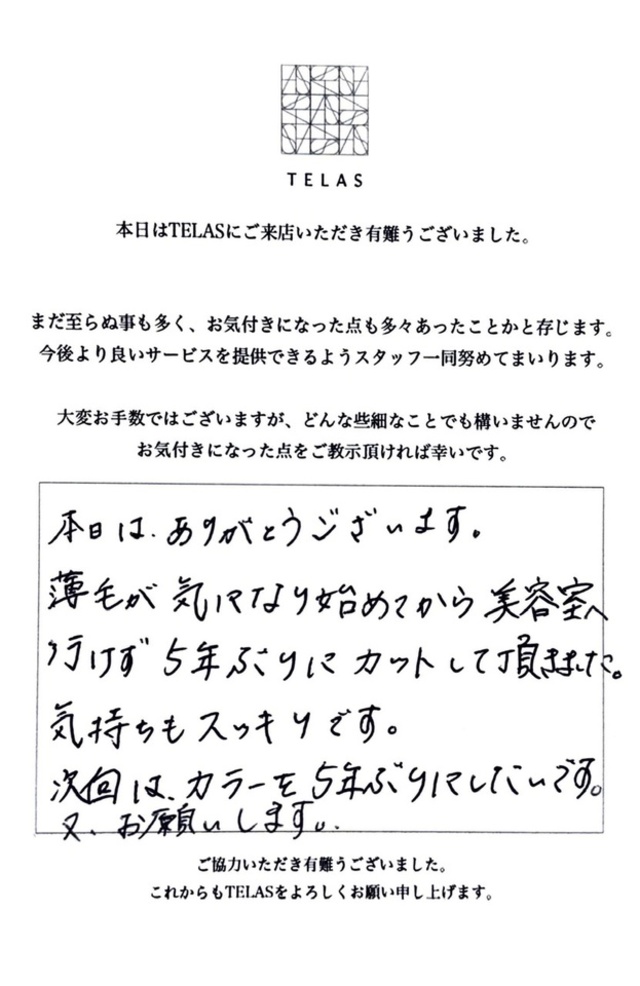 TELAS
本日はTELASにご来店いただき有難うございました。
まだ至らぬ事も多く、お気付きになった点も多々あったことかと存じます。
今後より良いサービスを提供できるようスタッフ一同努めてまいります。
大変お手数ではございますが、どんな些細なことでも構いませんので
お気付きになった点をご教示頂ければ幸いです。
本日は、ありがとうございます。
薄毛が気になり始めてから美容室へ
行けず5年ぶりにカットして頂きました。
気持ちもスッキリです。
次回は、カラーを5年ぶりにしたいです。
又、お願いします。
ご協力いただき有難うございました。
これからもTELASをよろしくお願い申し上げます。